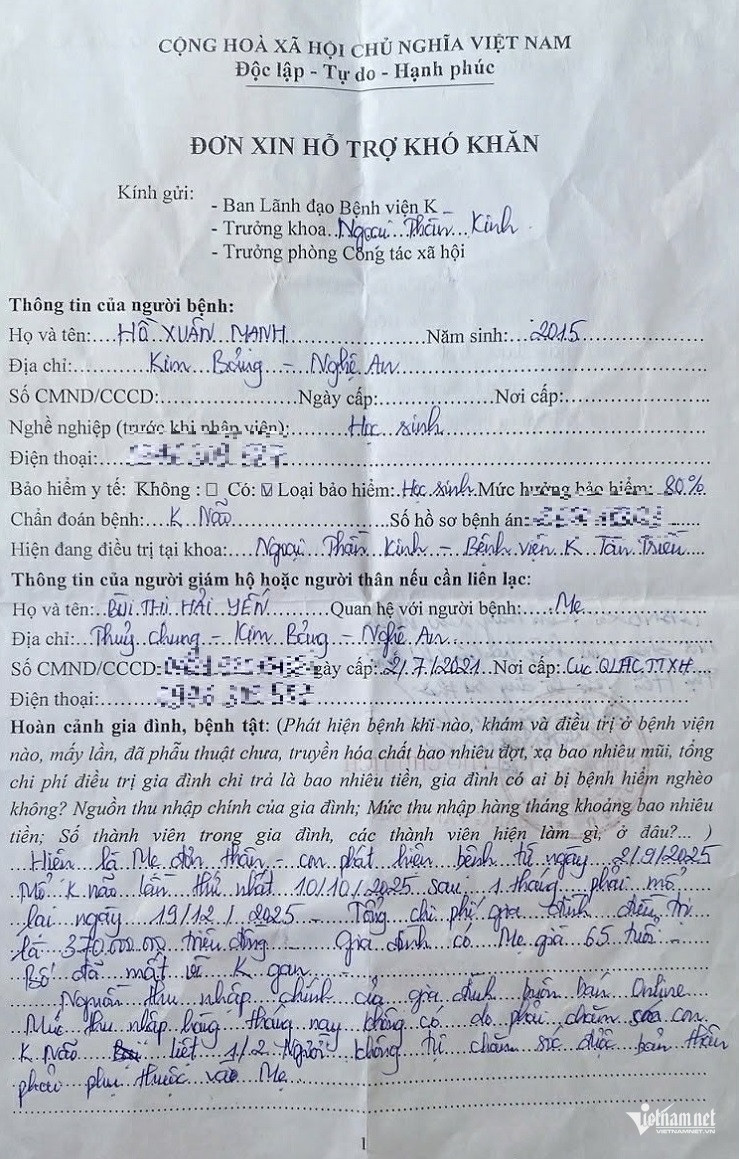 CỘNG HOÀ XÃ HỘI CHỦ NGHĨA VIỆT NAM
Độc lập - Tự do - Hạnh phúc
ĐƠN XIN HỖ TRỢ KHÓ KHĂN
Kính gửi:
- Ban Lãnh đạo Bệnh viện K
- Trưởng khoa...Ngoại...Thần...Kinh
- Trưởng phòng Công tác xã hội
Thông tin của người bệnh:
Họ và tên:....HỒ XUÂN MẠNH......Năm sinh:...2015
Địa chỉ:......Kim Bảng - Nghệ An
Số CMND/CCCD:......Ngày cấp:......Nơi cấp:......
Nghề nghiệp (trước khi nhập viện):......Học sinh
Điện thoại:...
Bảo hiểm y tế: Không : ☐ Có: ☑ Loại bảo hiểm: Học sinh Mức hưởng bảo hiểm: 80%
Chẩn đoán bệnh:....K Não......Số hồ sơ bệnh án:
Hiện đang điều trị tại khoa:...Ngoại...Thần...Kinh - Bệnh viện K Tân Triều
Thông tin của người giám hộ hoặc người thân nếu cần liên lạc:
Họ và tên: BÙI THỊ HẢI YẾN......Quan hệ với người bệnh:...Mẹ
Địa chỉ: Thuỷ Chung - Kim Bảng - Nghệ An
Số CMND/CCCD: gày cấp: 2/7/2021 Nơi cấp: Cục QLHC TTXH
Điện thoại:
Hoàn cảnh gia đình, bệnh tật: (Phát hiện bệnh khi nào, khám và điều trị ở bệnh viện
nào, mấy lần, đã phẫu thuật chưa, truyền hóa chất bao nhiêu đợt, xạ bao nhiêu mũi, tổng
chi phí điều trị gia đình chi trả là bao nhiêu tiền, gia đình có ai bị bệnh hiểm nghèo
không? Nguồn thu nhập chính của gia đình; Mức thu nhập hàng tháng khoảng bao nhiêu
tiền; Số thành viên trong gia đình, các thành viên hiện làm gì, ở đâu?... )
Hiện là Mẹ đơn thân - con phát hiện bệnh từ ngày 2/9/2025
Mổ K não lần thứ nhất 10/10/2025 sau 1 tháng phải mổ
lại ngày 19/12/2025 - Tổng chi phí gia đình điều trị
là 370.000.000 triệu đồng Gia đình có Mẹ già 65 tuổi -
Bố đã mất vì K gan
Nguồn thu nhập chính của gia đình buôn bán Online
Mức thu nhập hàng tháng nay không có do phải chăm sóc con
K Não liệt 1/2 Người không tự chăm sóc được bản thân
phải phụ thuộc vào Mẹ
1
Vietnamnet
VIETNAMNET.VN